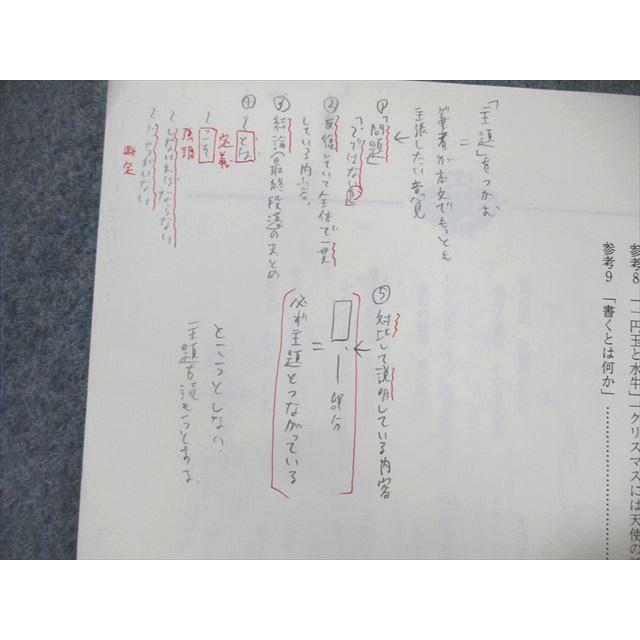 参考8 「一円玉と水牛」「クリスマスには天使の
参考9 「書くとは何か」……………………
「主題」をつかむ
=
筆者が本文でもっとも
主張したい意見
①「問題」
「〜ではないか」
②反復していて全体で一貫
している内容。
③結論(最終段落のまとめ
④
〜とは
定義
〜こそ
強調
〜しなければならない
〜にちがいない
断定
⑤対比して説明している内容
部分
=
必ず主題とつながっている